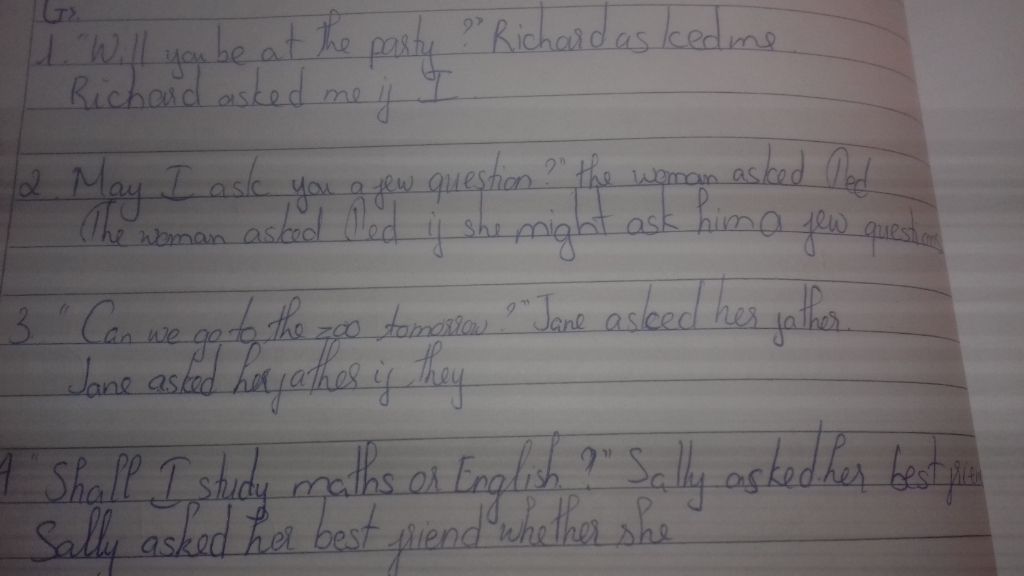 1. "Will you be at the party?" Richard asked me.
Richard asked me if I
2. May I ask you a few question?" the woman asked Ted
The woman asked Ted if she might ask him a few questions
3 "Can we go to the zoo tomorrow?" Jane asked her father.
Jane asked her father if they
4 "Shall I study maths or English?" Sally asked her best
Sally asked her best friend whether she